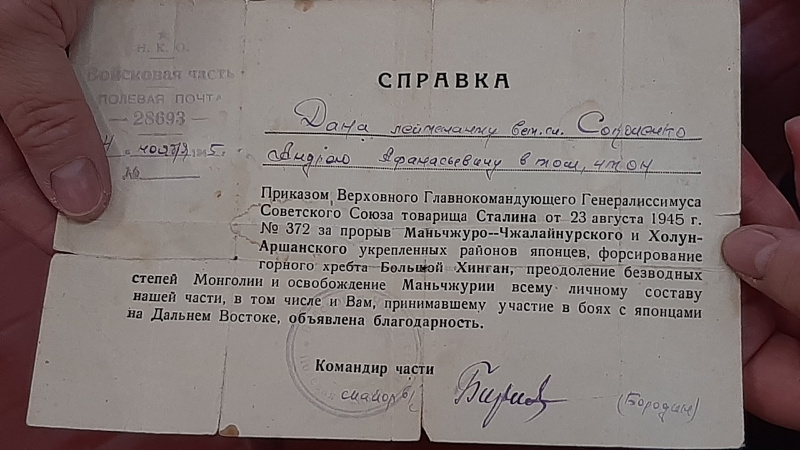 Н. К. О.
Войсковая часть
ПОЛЕВАЯ ПОЧТА
— 28693 —
4 " ноября 1945 г.
№
СПРАВКА
Дана лейтенанту вет.сл.
Андрею Афанасьевичу в том, что он
Приказом Верховного Главнокомандующего Генералиссимуса
Советского Союза товарища Сталина от 23 августа 1945 г.
№ 372 за прорыв Маньчжуро--Чжалайнурского и Холун-
Аршанского укрепленных районов японцев, форсирование
горного хребта Большой Хинган, преодоление безводных
степей Монголии и освобождение Маньчжурии всему личному составу
нашей части, в том числе и Вам, принимавшему участие в боях с японцами
на Дальнем Востоке, объявлена благодарность.
Командир части
(Бородин)